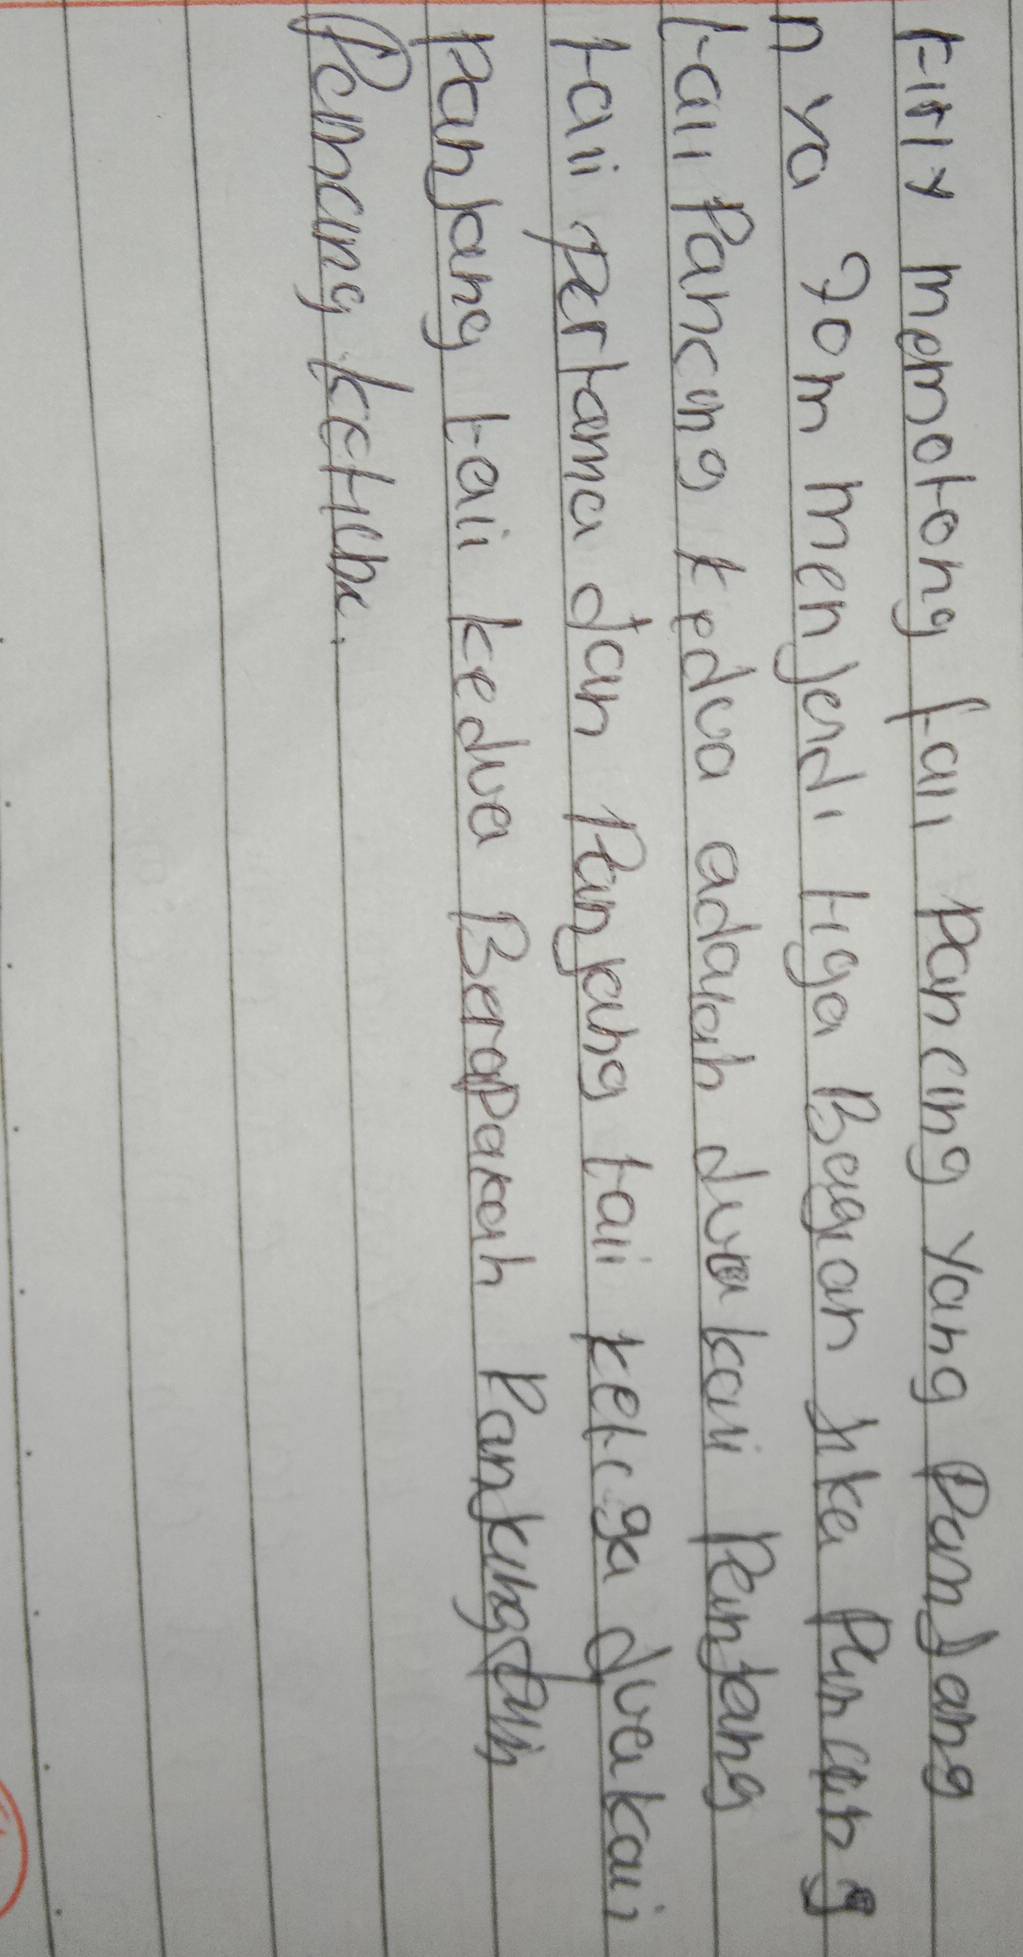 Firly memotong tali pancing yang Panjang
nya 70m menjadi tiga Bagian jika Pancang
tali Pancing kedua adalah dua kali Panjang
tali pertama dan Panjang tali ketiga dua kali
panjang tali kedua Berapakah Panjang tali
Pemancing ketiga.